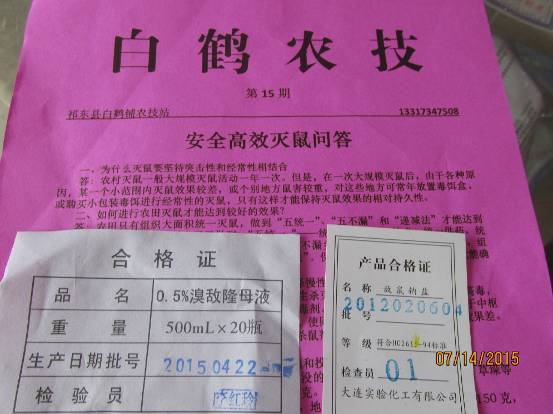 白鹤农技
第15期
祁东县白鹤铺农技站 13317347508
安全高效灭鼠问答
一、为什么灭鼠要坚持突击性和经常性相结合
答：农村灭鼠一般大规模灭鼠活动一年一次。但是，在一次大规模灭鼠后，由于各种原
因，某一个小范围内灭鼠效果较差，或个别地方鼠害较重，对这些地方可常年放置毒饵盒，
或购买小包装毒饵进行经常性的灭鼠，只有这样才能保持灭鼠效果的相对持久性。
二、如何进行农田灭鼠才能达到较好的效果？
答：农田只有组织大面积统一灭鼠，做到“五统一”、“五不漏”和“递减法”才能达到
合格证
品名 0.5%溴敌隆母液
重量 500mL×20瓶
生产日期批号 20150422
检验员
产品合格证
名称 敌鼠钠盐
批号 2012020604
等级 符合HG2611-94标准
检查员 01
大连实验化工有限公司
07/14/2015
150克，